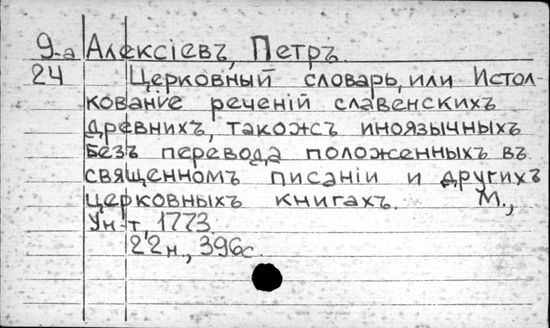 9-а Алексіевъ, Петръ.
24 Церковный словарь, или Истол-
кованіе реченій славенскихъ
древнихъ, такожъ иноязычныхъ
безъ перевода положенныхъ въ
священномъ писаніи и другихъ
церковныхъ книгахъ. М.,
Ун-т, 1773.
22н., 396с